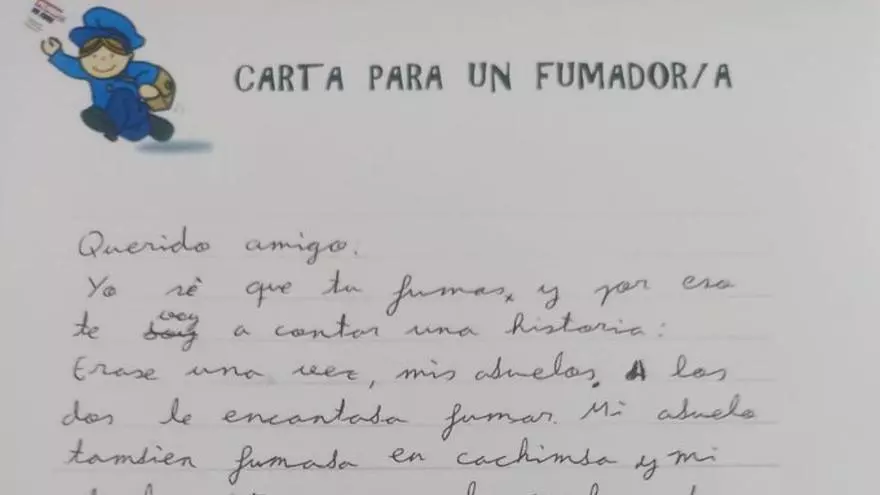 CARTA PARA UN FUMADOR/A
Querido amigo.
Yo sè que tu fumas, y por eso
voy
te boy a contar una historia:
Erase una vez, mis abuelos. A los
dos le encantaba fumar. Mi abuelo
tambien fumaba en cachimba y mi